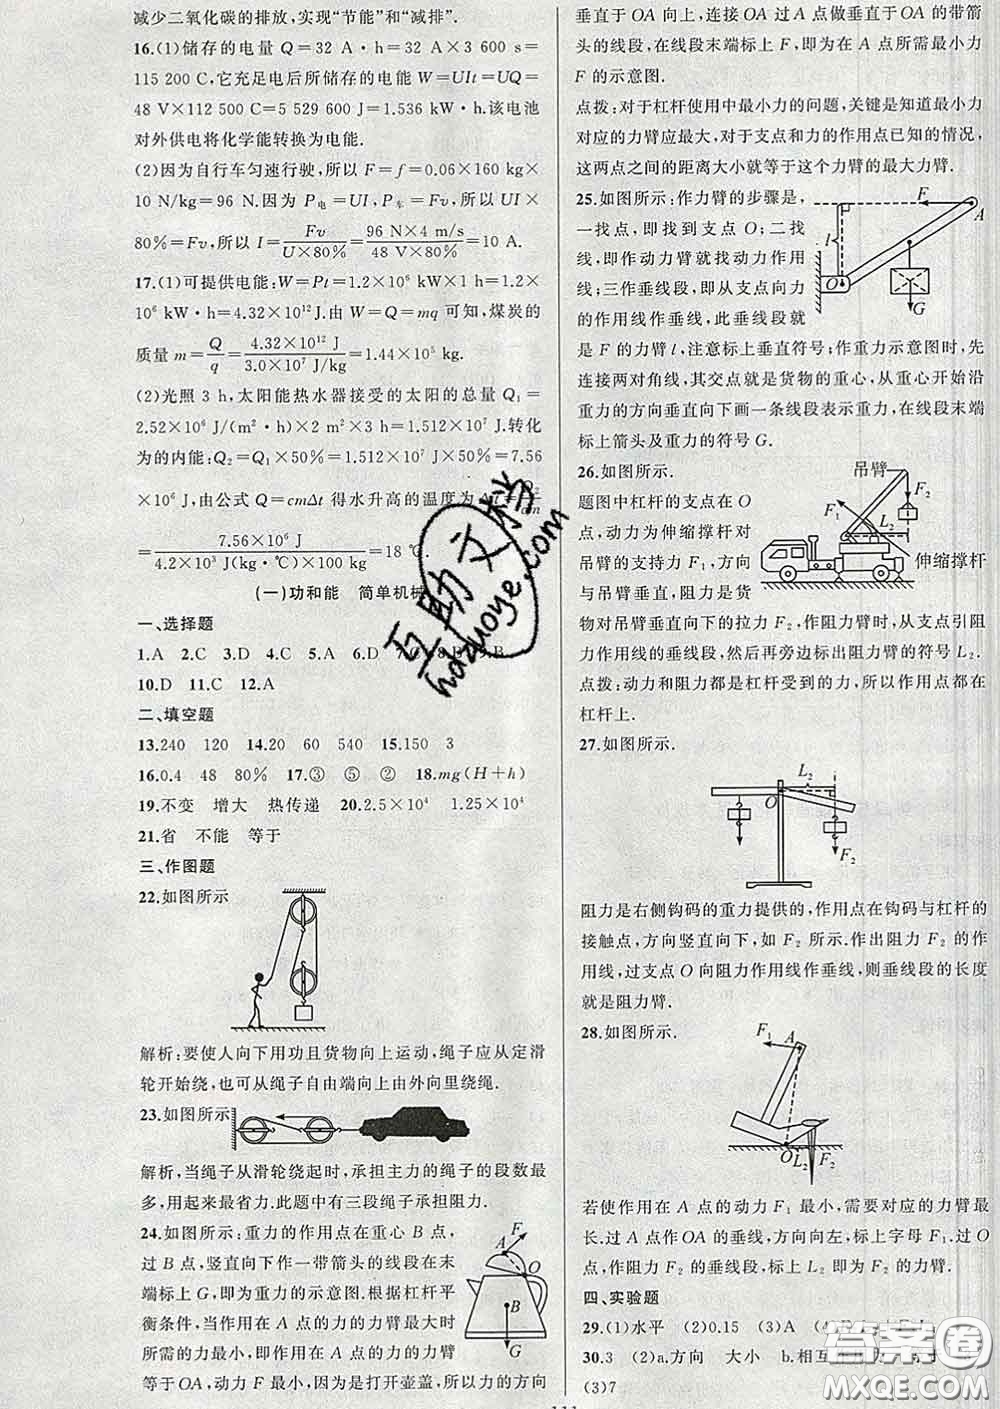 减少二氧化碳的排放,实现“节能”和“减排”.
16.(1)储存的电量 Q=32 A·h=32 A×3 600 s=
115 200 C,它充足电后所储存的电能 W=UIt=UQ=
48 V×112 500 C=5 529 600 J=1.536 kW·h.该电池
对外供电将化学能转换为电能.
(2)因为自行车匀速行驶,所以 F=f=0.06×160 kg×
10 N/kg=96 N.因为 P电=UI,P车=Fv,所以 UI×
80%=Fv,所以 I=Fv/(U×80%)=(96 N×4 m/s)/(48 V×80%)=10 A.
17.(1)可提供电能:W=Pt=1.2×10⁶ kW×1 h=1.2×
10⁶ kW·h=4.32×10¹²J.由 W=Q=mq 可知,煤炭的
质量 m=Q/q=(4.32×10¹² J)/(3.0×10⁷ J/kg)=1.44×10⁵ kg.
(2)光照 3 h,太阳能热水器接受的太阳的总量 Q₁=
2.52×10⁶ J/(m²·h)×2 m²×3 h=1.512×10⁷J.转化
为的内能:Q₂=Q₁×50%=1.512×10⁷ J×50%=7.56
×10⁶J,由公式 Q=cmΔt 得水升高的温度为 Δt=Q₂/cm
=(7.56×10⁶ J)/(4.2×10³ J(kg·℃)×100 kg)=18 ℃.
(一)功和能 简单机械
一、选择题
1.A 2.C 3.D 4.C 5.A 6.D 7.C 8.D 9.B
10.D 11.C 12.A
二、填空题
13.240 120 14.20 60 540 15.150 3
16.0.4 48 80% 17.③ ⑤ ② 18.mg(H+h)
19.不变 增大 热传递 20.2.5×10⁴ 1.25×10⁴
21.省 不能 等于
三、作图题
22.如图所示
解析:要使人向下用功且货物向上运动,绳子应从定滑
轮开始绕,也可从绳子自由端向上由外向里绕绳.
23.如图所示
解析,当绳子从滑轮绕起时,承担主力的绳子的段数最
多,用起来最省力.此题中有三段绳子承担阻力.
24.如图所示:重力的作用点在重心 B 点,
过 B 点,竖直向下作一带箭头的线段在末
端标上 G,即为重力的示意图.根据杠杆平
衡条件,当作用在 A 点的力的力臂最大时
所需的力最小,即作用在 A 点的力的力臂
等于 OA,动力 F 最小,因为是打开壶盖,所以力的方向
F
A
O
B
G
垂直于 OA 向上,连接 OA 过 A 点做垂直于 OA 的带箭
头的线段,在线段末端标上 F,即为在 A 点所需最小力
F 的示意图.
点拨:对于杠杆使用中最小力的问题,关键是知道最小力
对应的力臂应最大,对于支点和力的作用点已知的情况,
这两点之间的距离大小就等于这个力臂的最大力臂.
25.如图所示:作力臂的步骤是,
一找点,即找到支点 O;二找
线,即作动力臂就找动力作用
线;三作垂线段,即从支点向力
的作用线作垂线,此垂线段就
是 F 的力臂 l,注意标上垂直符号;作重力示意图时,先
连接两对角线,其交点就是货物的重心,从重心开始沿
重力的方向垂直向下画一条线段表示重力,在线段末端
标上箭头及重力的符号 G.
F
A
l
O
G
26.如图所示.
题图中杠杆的支点在 O
点,动力为伸缩撑杆对
吊臂的支持力 F₁,方向
与吊臂垂直,阻力是货
物对吊臂垂直向下的拉力 F₂,作阻力臂时,从支点引阻
力作用线的垂线段,然后再旁边标出阻力臂的符号 L₂.
点拨:动力和阻力都是杠杆受到的力,所以作用点都在
杠杆上.
吊臂
F₁
F₂
L₂
伸缩撑杆
27.如图所示.
L₂
O
F₂
F₂
阻力是右侧钩码的重力提供的,作用点在钩码与杠杆的
接触点,方向竖直向下,如 F₂ 所示.作出阻力 F₂ 的作
用线,过支点 O 向阻力作用线作垂线,则垂线段的长度
就是阻力臂.
28.如图所示.
F₁
A
O
L₂
F₂
若使作用在 A 点的动力 F₁ 最小,需要对应的力臂最
长.过 A 点作 OA 的垂线,方向向左,标上字母 F₁.过 O
点,作阻力 F₂ 的垂线段,标上 L₂ 即为 F₂ 的力臂.
四、实验题
29.(1)水平 (2)0.15 (3)A
30.3 (2)a.方向 大小 b.相互
(3)7
111
互助文档
hdzuoye.com
答案圈
MXQE.COM